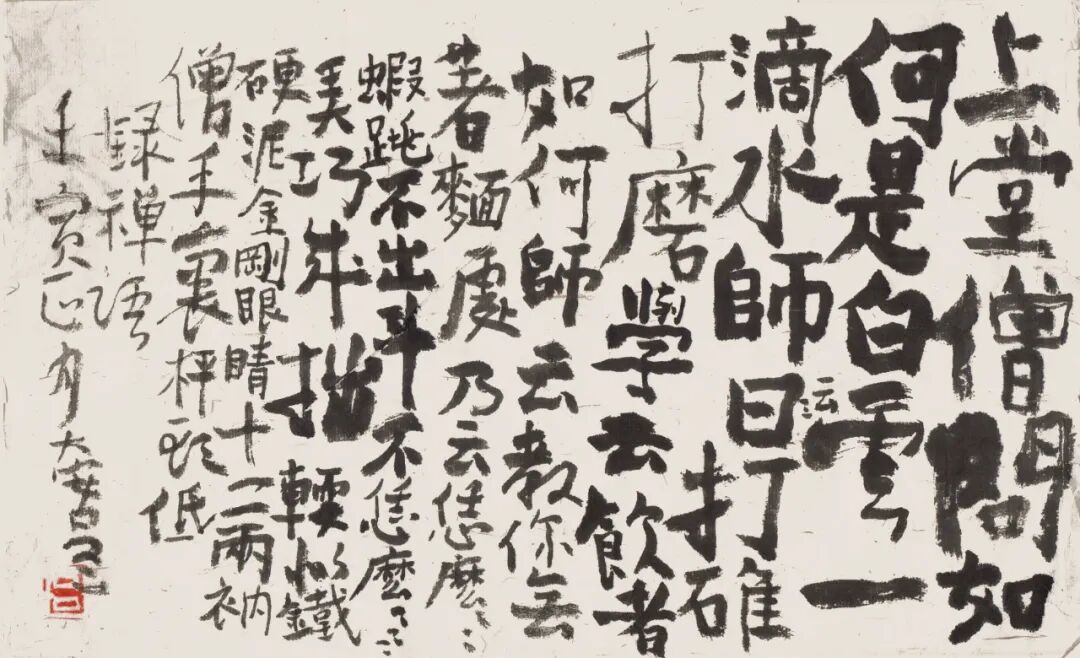 上堂僧問如
何是白雲一
滴水師曰打碓
打磨學云飲者
如何師云教你無
著麵處乃云恁麼〻〻
蝦跳不出斗不恁麼〻〻〻
弄巧成拙輭似鐵
硬泥金剛眼睛十二兩衲
僧手裏秤頭低
録禪語
壬寅正月